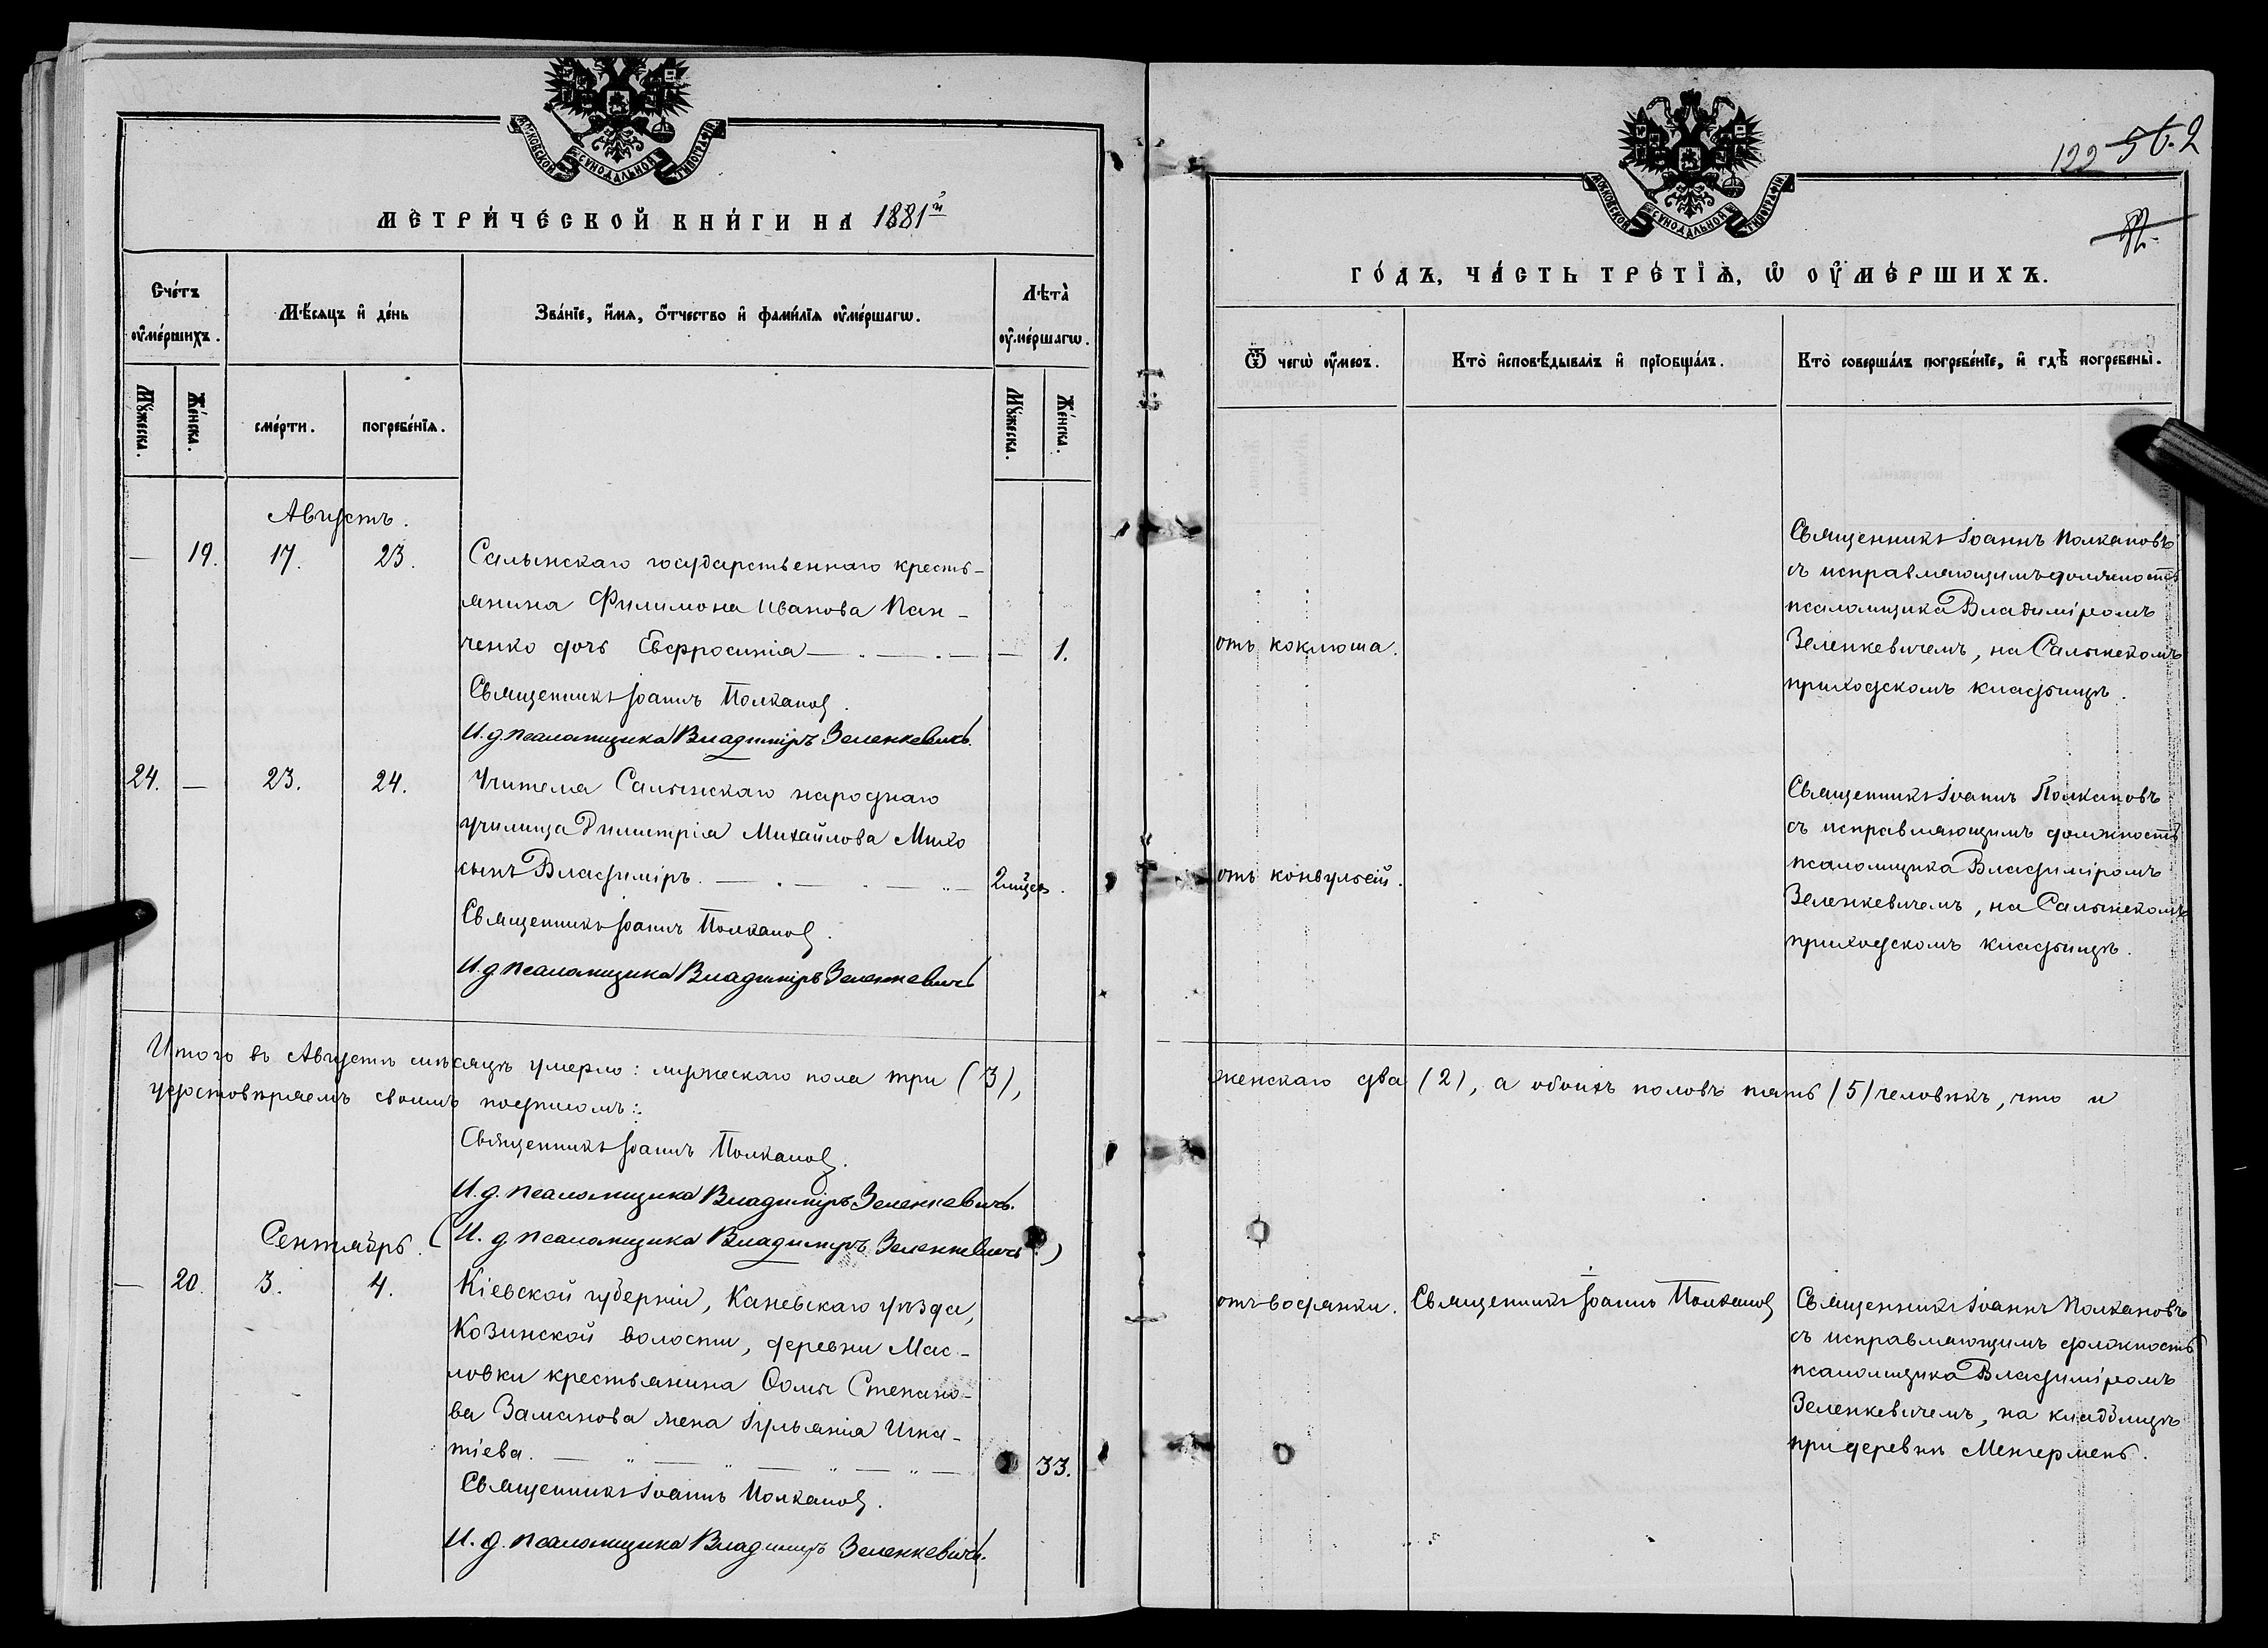 МОСКОВСКОЙ СѴНОДАЛЬНОЙ ТИПОГРАФІИ
МЕТРИ́ЧЕСКОЙ КНИ́ГИ НА 1881й
Сче́тъ ᲂу҆ме́ршихъ.
Мѣ́сяцъ и҆ де́нь
Зва́нїе, и҆́мя, ѻ҆́тчество и҆ фами́лїя ᲂу҆ме́ршагѡ.
Лѣ́та ᲂу҆ме́ршагѡ.
Мꙋ́жеска.
Же́нска.
сме́рти.
погребе́нїя.
Мꙋ́жеска.
Же́нска.
Августъ.
— 19. 17. 23.
Салынскаго государственнаго кресть-
янина Филимона Иванова Пан-
ченко дочь Евфросинія — 1.
Священникъ Іоаннъ Полкановъ.
И. д. псаломщика Владиміръ Зеленкевичъ.
24. — 23. 24.
Учителя Салынскаго народнаго
училища Димитрія Михайлова Михо
сынъ Владиміръ. — 2 мѣсц.
Священникъ Іоаннъ Полкановъ.
И. д. псаломщика Владиміръ Зеленкевичъ
Итого въ Августѣ мѣсяцѣ умерло: мужескаго пола три (3),
удостовѣряемъ своимъ подписомъ:
Священникъ Іоаннъ Полкановъ.
И. д. псаломщика Владиміръ Зеленкевичъ.
Сентябрь. (И. д. псаломщика Владиміръ Зеленкевичъ.)
— 20. 3. 4.
Кіевской губерніи, Каневскаго уѣзда,
Козинской волости, деревни Мас-
ловки крестьянина Ѳомы Степано-
ва Заманова жена Іульянія Игна-
тіева. — 33.
Священникъ Іоаннъ Полкановъ.
И. д. псаломщика Владиміръ Зеленкевичъ.
МОСКОВСКОЙ СѴНОДАЛЬНОЙ ТИПОГРАФІИ
122 56. 2
ГО́ДЪ, ЧА́СТЬ ТРЕ́ТЇѦ, Ѡ҆ ОУ҆МЕ́РШИХЪ.
Ѿ чегѡ̀ ᲂу҆́меръ.
Кто̀ и҆сповѣ́дывалъ и҆ прїобща́лъ.
Кто̀ соверша́лъ погребе́нїе, и҆ гдѣ̀ погребены̀.
Священникъ Іоаннъ Полкановъ
съ исправляющимъ должность
псаломщика Владиміромъ
Зеленкевичемъ, на Салынскомъ
приходскомъ кладбищѣ.
отъ коклюша.
Священникъ Іоаннъ Полкановъ
съ исправляющимъ должность
псаломщика Владиміромъ
Зеленкевичемъ, на Салынскомъ
приходскомъ кладбищѣ.
отъ конвульсій.
женскаго два (2), а обоихъ половъ пять (5) человѣкъ, что и
отъ водянки.
Священникъ Іоаннъ Полкановъ
Священникъ Іоаннъ Полкановъ
съ исправляющимъ должность
псаломщика Владиміромъ
Зеленкевичемъ, на кладбищѣ
при деревнѣ Менгермень.